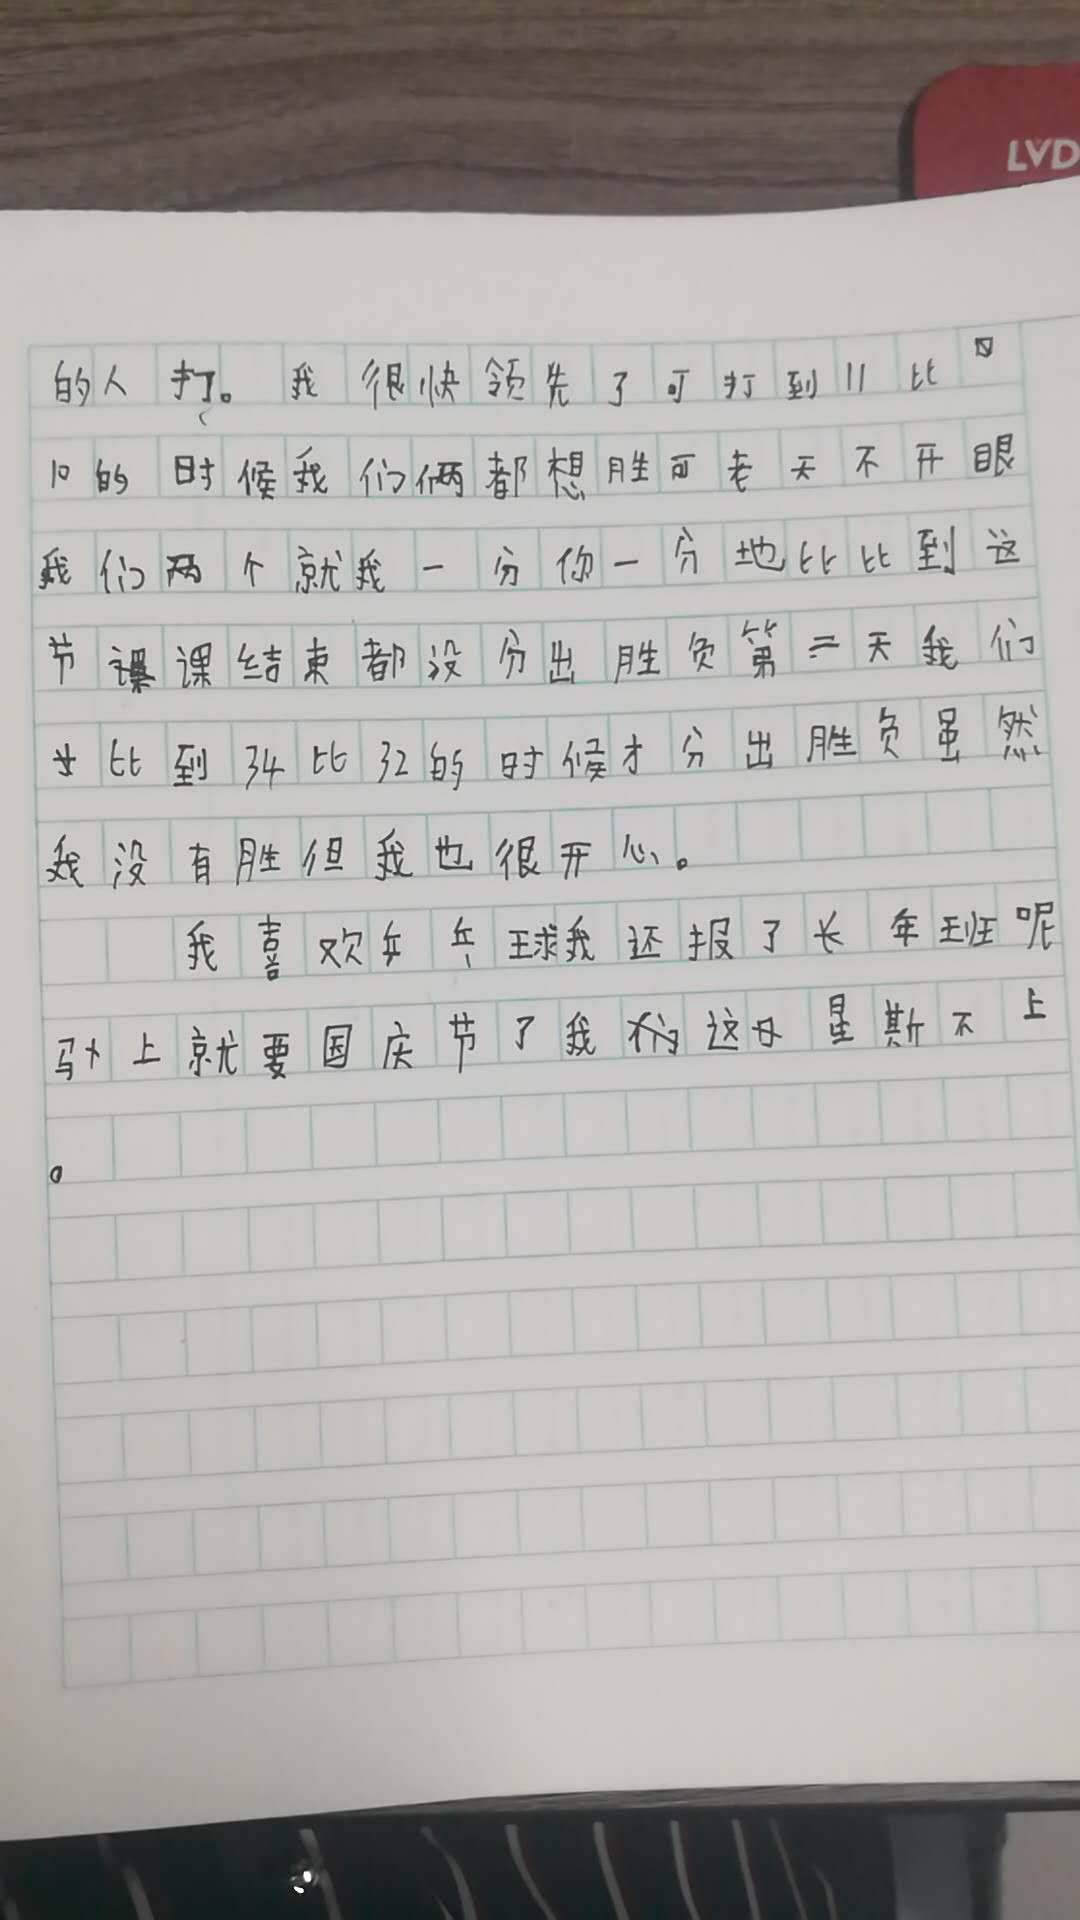 LVD
的人打了。我很快领先了可打到11比
10的时候我们俩都想胜可老天不开眼
我们两个就我一分你一分地比比到这
节课课结束都没分出胜负第二天我们
比到34比32的时候才分出胜负虽然
我没有胜但我也很开心。
我喜欢乒乓球我还报了长年班呢
马上就要国庆节了我们这 星期不上
。